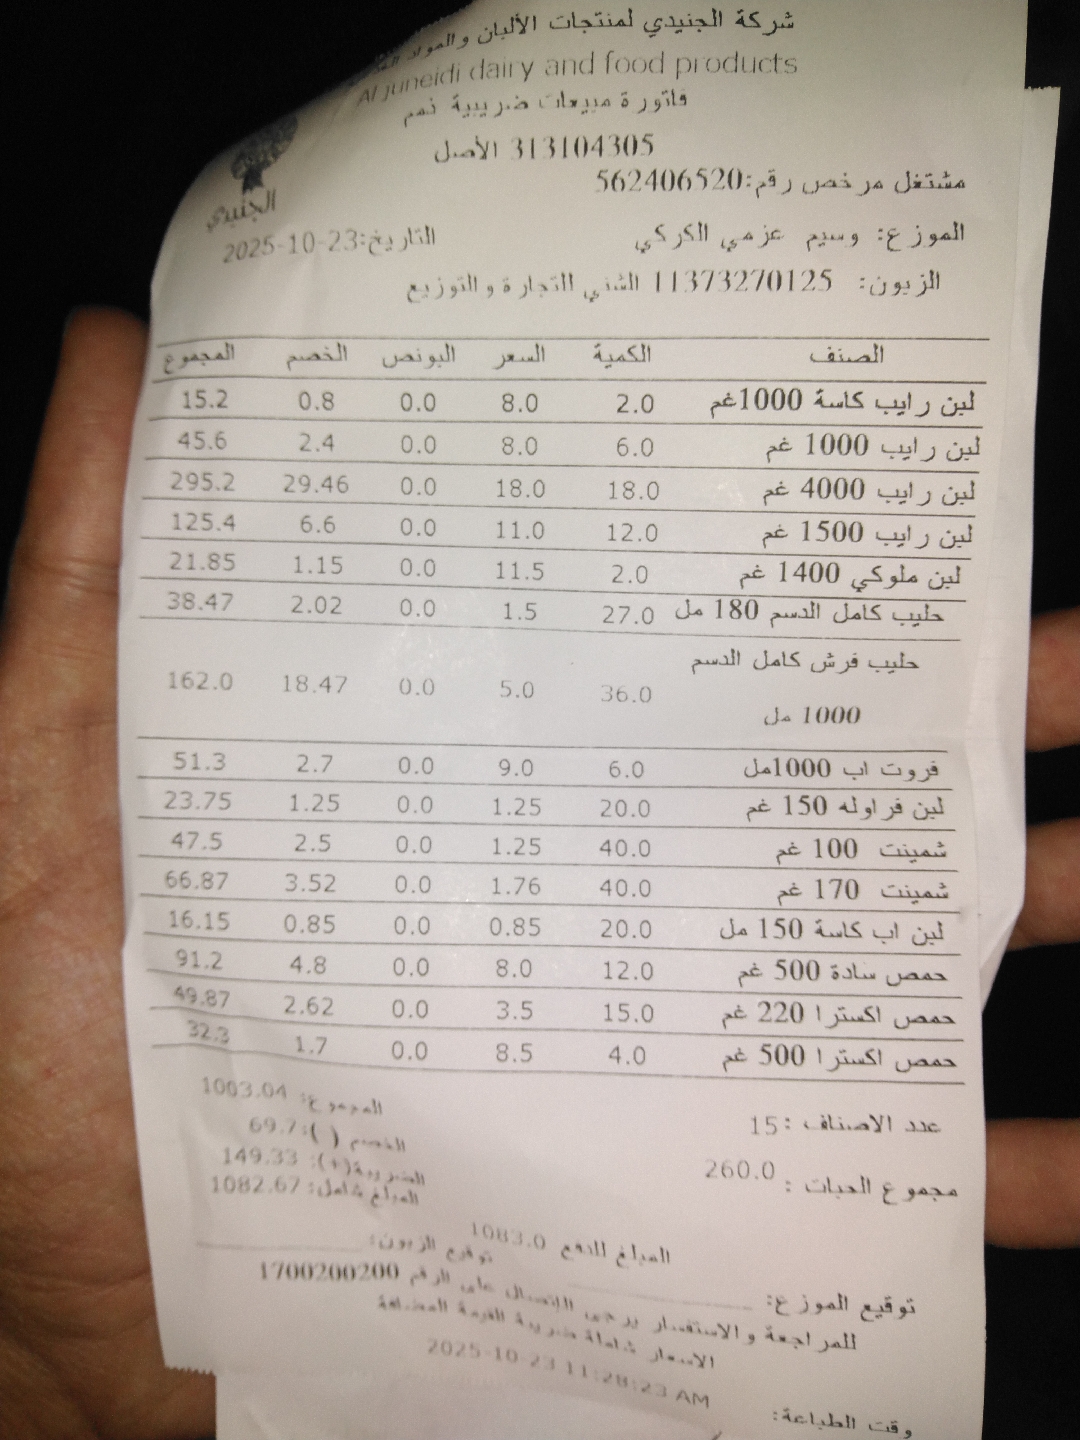 شركة الجنيدي لمنتجات الألبان والمواد
Al Juneidi dairy and food products
فاتورة مبيعات ضريبية نمم
313104305 الأصل
مشتغل مرخص رقم:562406520
الجنيدي
الموزع: وسيم عزمي الكركي التاريخ:2025-10-23
الزبون: 11373270125 الشني التجارة والتوزيع
الصنف الكمية السعر البونص الخصم المجموع
لبن رايب كاسة 1000غم 2.0 8.0 0.0 0.8 15.2
لبن رايب 1000 غم 6.0 8.0 0.0 2.4 45.6
لبن رايب 4000 غم 18.0 18.0 0.0 29.46 295.2
لبن رايب 1500 غم 12.0 11.0 0.0 6.6 125.4
لبن ملوكي 1400 غم 2.0 11.5 0.0 1.15 21.85
حليب كامل الدسم 180 مل 27.0 1.5 0.0 2.02 38.47
حليب فرش كامل الدسم
1000 مل 36.0 5.0 0.0 18.47 162.0
فروت اب 1000مل 6.0 9.0 0.0 2.7 51.3
لبن فراوله 150 غم 20.0 1.25 0.0 1.25 23.75
شمينت 100 غم 40.0 1.25 0.0 2.5 47.5
شمينت 170 غم 40.0 1.76 0.0 3.52 66.87
لبن اب كاسة 150 مل 20.0 0.85 0.0 0.85 16.15
حمص سادة 500 غم 12.0 8.0 0.0 4.8 91.2
حمص اكسترا 220 غم 15.0 3.5 0.0 2.62 49.87
حمص اكسترا 500 غم 4.0 8.5 0.0 1.7 32.3
المجموع: 1003.04
عدد الاصناف : 15
الخصم ( ):69.7
الضريبة(+): 149.33
مجموع الحبات : 260.0
المبلغ شامل: 1082.67
المبلغ للدفع 1083.0
توقيع الزبون:
توقيع الموزع:
للمراجعة والاستفسار يرجى الإتصال على الرقم 1700200200
الاسعار شاملة ضريبة القيمة المضافة
وقت الطباعة: 2025-10-23 11:28:23 AM